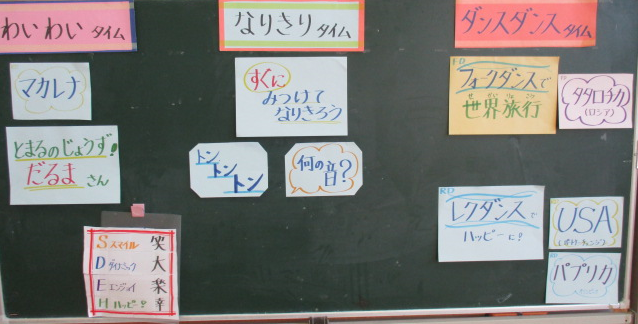 わいわいタイム
マカレナ
とまるのじょうず!
だるまさん
Sスマイル 笑
Dダイナミック 大
Eエンジョイ 楽
Hハッピー 幸
なりきりタイム
すぐに
みつけて
なりきろう
トン
トン
トン
何の
音?
ダンスダンスタイム
FD
フォークダンスで
世界旅行
せかいりょこう
タタロチカ
(ロシア)
RD
レクダンスで
ハッピーに?
USA
パプリカ